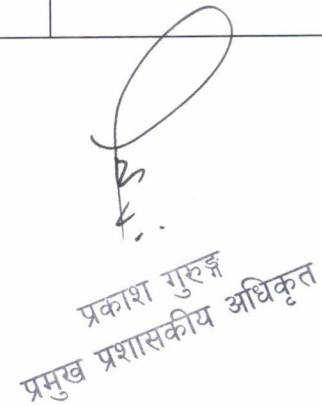 प्रकाश गुरुङ्ग
प्रमुख प्रशासकीय अधिकृत